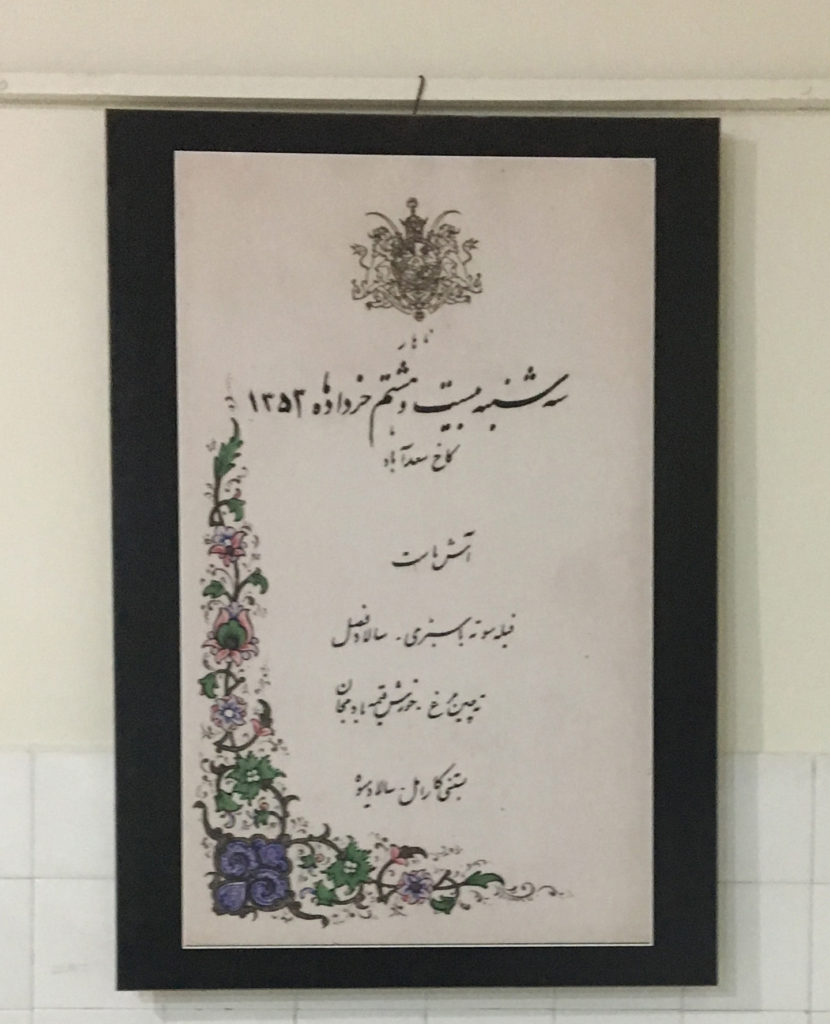 ناهار
سه شنبه بیست و هشتم خرداد ماه ۱۳۵۳
کاخ سعدآباد
آش ماست
فیله سوته با سبزی - سالاد فصل
ته چین مرغ - خورش قیمه بادمجان
بستنی کارامل - سالاد میوه